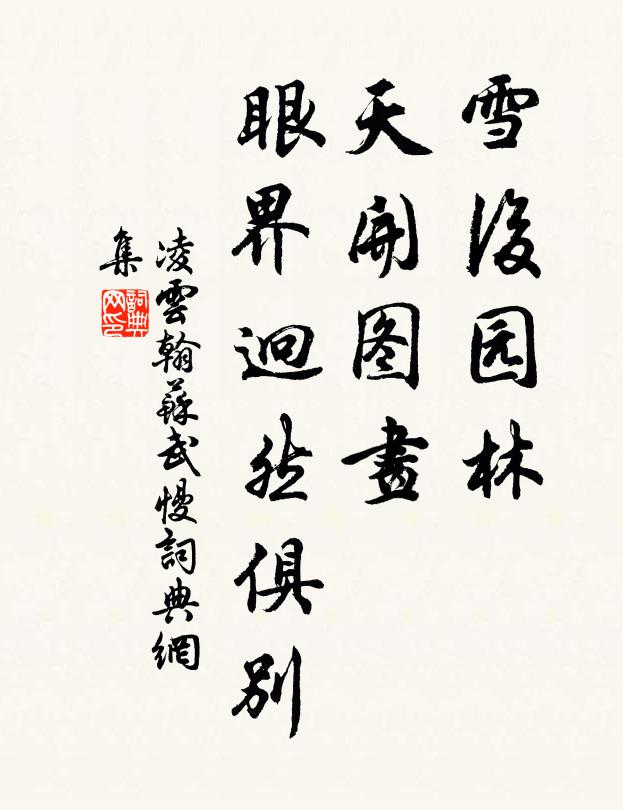 雪後园林
天開图畫
眼界迥然俱別
凌雲翰蘇武慢詞典網
集
詞典
网印